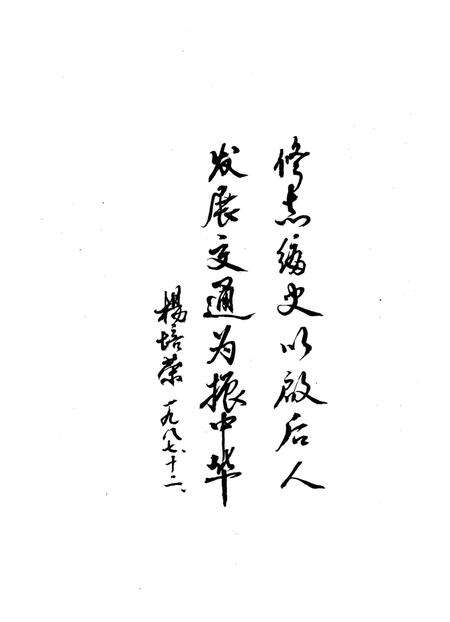 修志编史以启后人
发展交通为振中华
楊培荣 一九八七、十二、